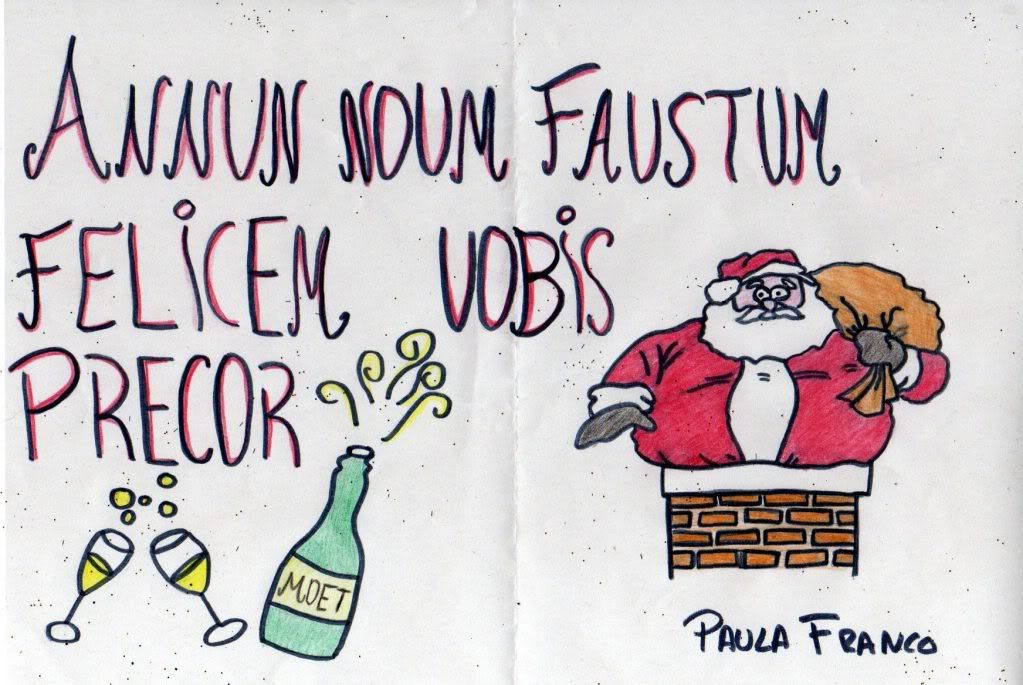 ANNUN NOUM FAUSTUM
FELiCEM VOBiS
PRECOR
MOET
PAULA FRANCO